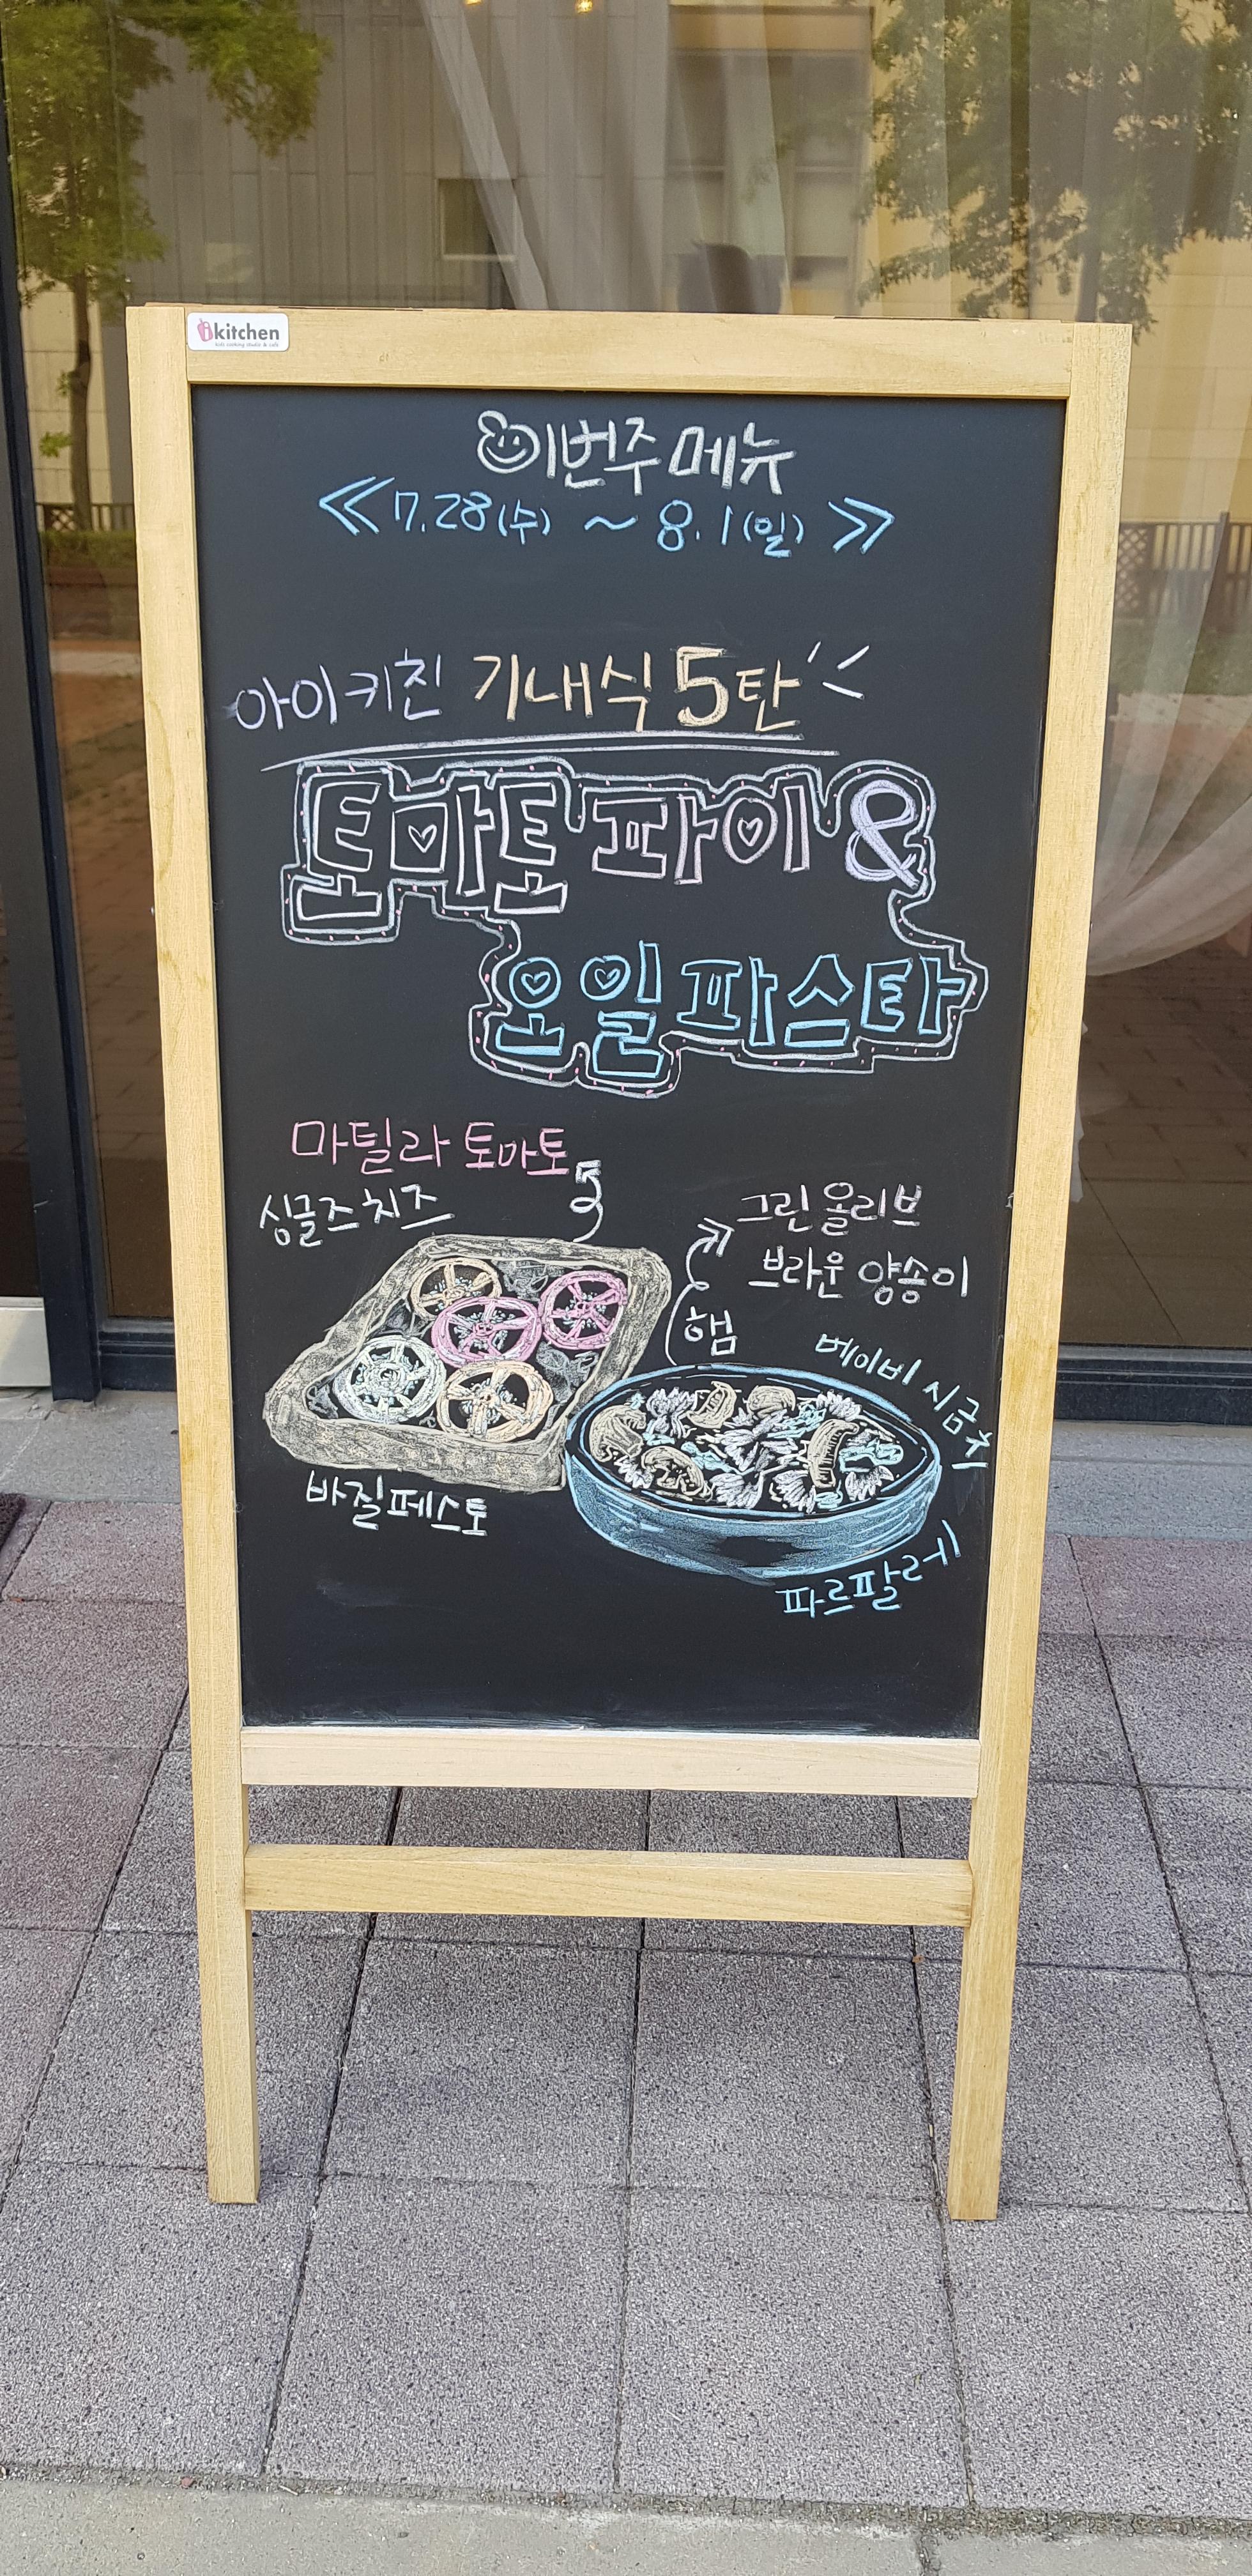 ikitchen
kids cooking studio & cafe
이번주 메뉴
≪ 7.28(수) ~ 8.1(일) ≫
아이키친 기내식 5탄
토마토 파이 &
오일 파스타
마틸라 토마토
싱글즈 치즈
그린 올리브
브라운 양송이
햄
베이비 시금치
바질페스토
파르팔레